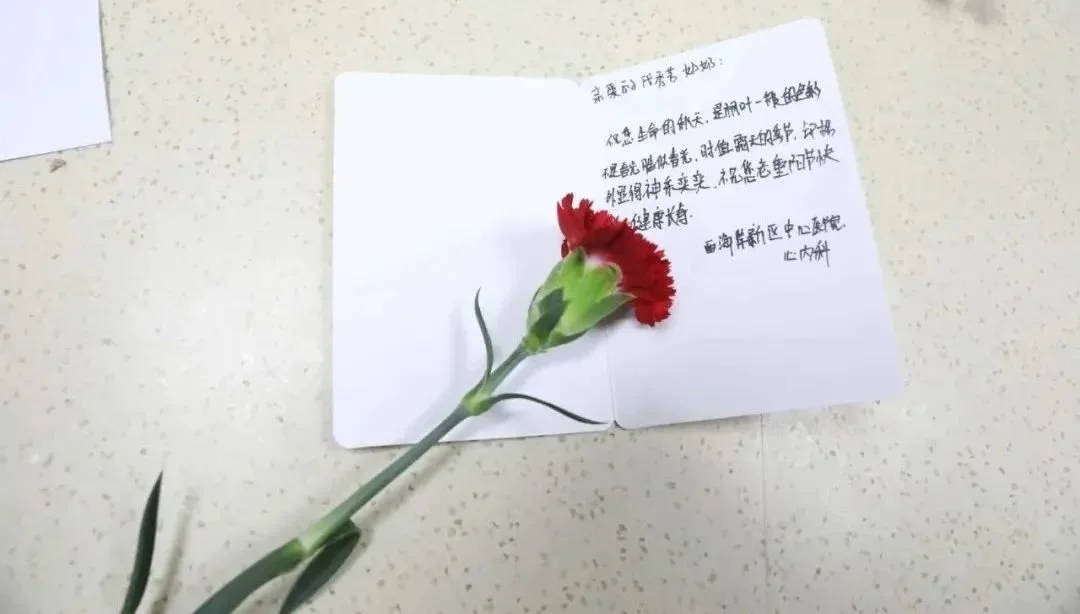 亲爱的代秀芳奶奶:
在您生命的秋天,是枫叶一般的色彩
不是春光胜似春光,时值霜天的季节,却格
外显得神采奕奕,祝您老重阳节快
健康长寿.
西海岸新区中心医院
心内科